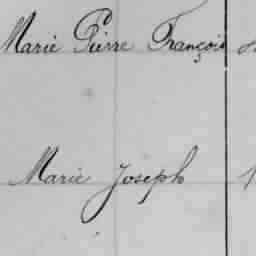 Marie Pierre François
Marie Joseph